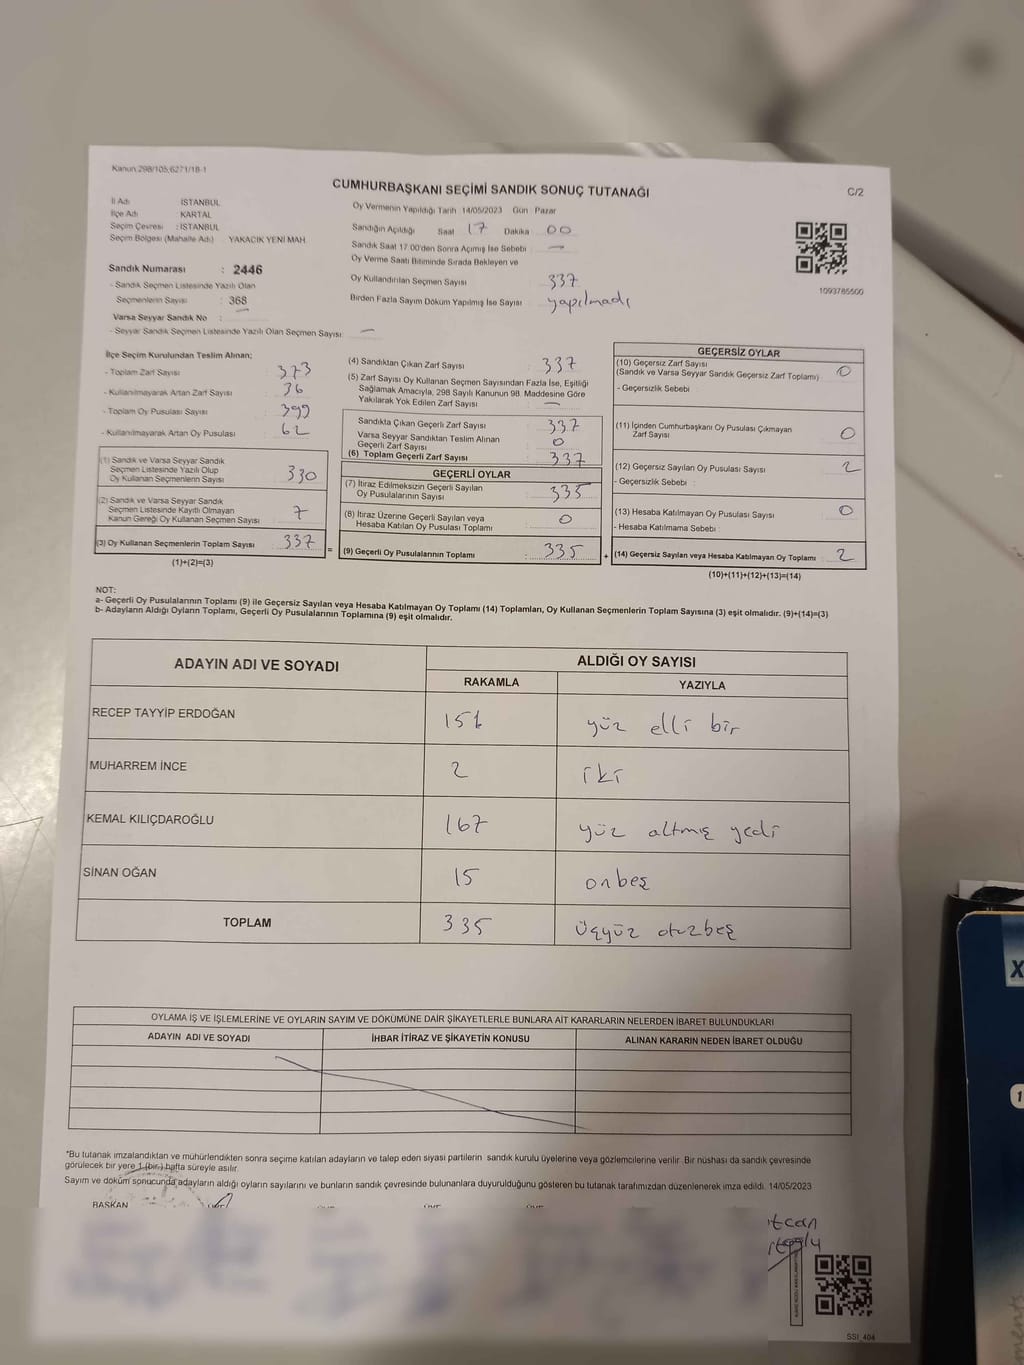 Kanun:298/105;6271/18-1
CUMHURBAŞKANI SEÇİMİ SANDIK SONUÇ TUTANAĞI
C/2
İl Adı : İSTANBUL
İlçe Adı : KARTAL
Seçim Çevresi : İSTANBUL
Seçim Bölgesi (Mahalle Adı) YAKACIK YENİ MAH.
Sandık Numarası : 2446
- Sandık Seçmen Listesinde Yazılı Olan
Seçmenlerin Sayısı : 368
Varsa Seyyar Sandık No :
- Seyyar Sandık Seçmen Listesinde Yazılı Olan Seçmen Sayısı: —
Oy Vermenin Yapıldığı Tarih 14/05/2023 Gün : Pazar
Sandığın Açıldığı Saat 17 Dakika 00
Sandık Saat 17:00'den Sonra Açımış İse Sebebi : —
Oy Verme Saati Bitiminde Sırada Bekleyen ve
Oy Kullandırılan Seçmen Sayısı : 337
Birden Fazla Sayım Döküm Yapılmış İse Sayısı : yapılmadı
1093785500
İlçe Seçim Kurulundan Teslim Alınan;
- Toplam Zarf Sayısı : 373
- Kullanılmayarak Artan Zarf Sayısı : 36
- Toplam Oy Pusulası Sayısı : 399
- Kullanılmayarak Artan Oy Pusulası : 62
(1) Sandık ve Varsa Seyyar Sandık
Seçmen Listesinde Yazılı Olup
Oy Kullanan Seçmenlerin Sayısı : 330
(2) Sandık ve Varsa Seyyar Sandık
Seçmen Listesinde Kayıtlı Olmayan
Kanun Gereği Oy Kullanan Seçmen Sayısı : 7
(3) Oy Kullanan Seçmenlerin Toplam Sayısı : 337
(1)+(2)=(3)
=
(4) Sandıktan Çıkan Zarf Sayısı : 337
(5) Zarf Sayısı Oy Kullanan Seçmen Sayısından Fazla İse, Eşitliği
Sağlamak Amacıyla, 298 Sayılı Kanunun 98. Maddesine Göre
Yakılarak Yok Edilen Zarf Sayısı : —
Sandıkta Çıkan Geçerli Zarf Sayısı : 337
Varsa Seyyar Sandıktan Teslim Alınan
Geçerli Zarf Sayısı : 0
(6) Toplam Geçerli Zarf Sayısı : 337
GEÇERLİ OYLAR
(7) İtiraz Edilmeksizin Geçerli Sayılan
Oy Pusulalarının Sayısı : 335
(8) İtiraz Üzerine Geçerli Sayılan veya
Hesaba Katılan Oy Pusulası Toplamı : 0
(9) Geçerli Oy Pusulalarının Toplamı : 335
+
GEÇERSİZ OYLAR
(10) Geçersiz Zarf Sayısı
(Sandık ve Varsa Seyyar Sandık Geçersiz Zarf Toplamı) : 0
- Geçersizlik Sebebi :
(11) İçinden Cumhurbaşkanı Oy Pusulası Çıkmayan
Zarf Sayısı : 0
(12) Geçersiz Sayılan Oy Pusulası Sayısı : 2
- Geçersizlik Sebebi :
(13) Hesaba Katılmayan Oy Pusulası Sayısı : 0
- Hesaba Katılmama Sebebi :
(14) Geçersiz Sayılan veya Hesaba Katılmayan Oy Toplamı : 2
(10)+(11)+(12)+(13)=(14)
NOT:
a- Geçerli Oy Pusulalarının Toplamı (9) ile Geçersiz Sayılan veya Hesaba Katılmayan Oy Toplamı (14) Toplamları, Oy Kullanan Seçmenlerin Toplam Sayısına (3) eşit olmalıdır. (9)+(14)=(3)
b- Adayların Aldığı Oyların Toplamı, Geçerli Oy Pusulalarının Toplamına (9) eşit olmalıdır.
ADAYIN ADI VE SOYADI
ALDIĞI OY SAYISI
RAKAMLA YAZIYLA
RECEP TAYYİP ERDOĞAN 151 yüz elli bir
MUHARREM İNCE 2 iki
KEMAL KILIÇDAROĞLU 167 yüz altmış yedi
SİNAN OĞAN 15 onbeş
TOPLAM 335 üçyüz otuzbeş
OYLAMA İŞ VE İŞLEMLERİNE VE OYLARIN SAYIM VE DÖKÜMÜNE DAİR ŞİKAYETLERLE BUNLARA AİT KARARLARIN NELERDEN İBARET BULUNDUKLARI
ADAYIN ADI VE SOYADI İHBAR İTİRAZ VE ŞİKAYETİN KONUSU ALINAN KARARIN NEDEN İBARET OLDUĞU
*Bu tutanak imzalandıktan ve mühürlendikten sonra seçime katılan adayların ve talep eden siyasi partilerin sandık kurulu üyelerine veya gözlemcilerine verilir. Bir nüshası da sandık çevresinde
görülecek bir yere 1 (bir) hafta süreyle asılır.
Sayım ve döküm sonucunda adayların aldığı oyların sayılarını ve bunların sandık çevresinde bulunanlara duyurulduğunu gösteren bu tutanak tarafımızdan düzenlenerek imza edildi. 14/05/2023
BAŞKAN
SSI_404
X
1